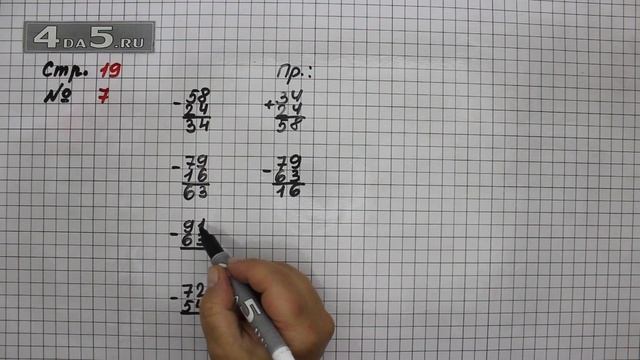 4DA5.RU
Стр. 19
№ 7
Пр.:
- 58
24
34
+ 34
24
58
- 79
16
63
- 79
63
16
- 91
63
- 72
5